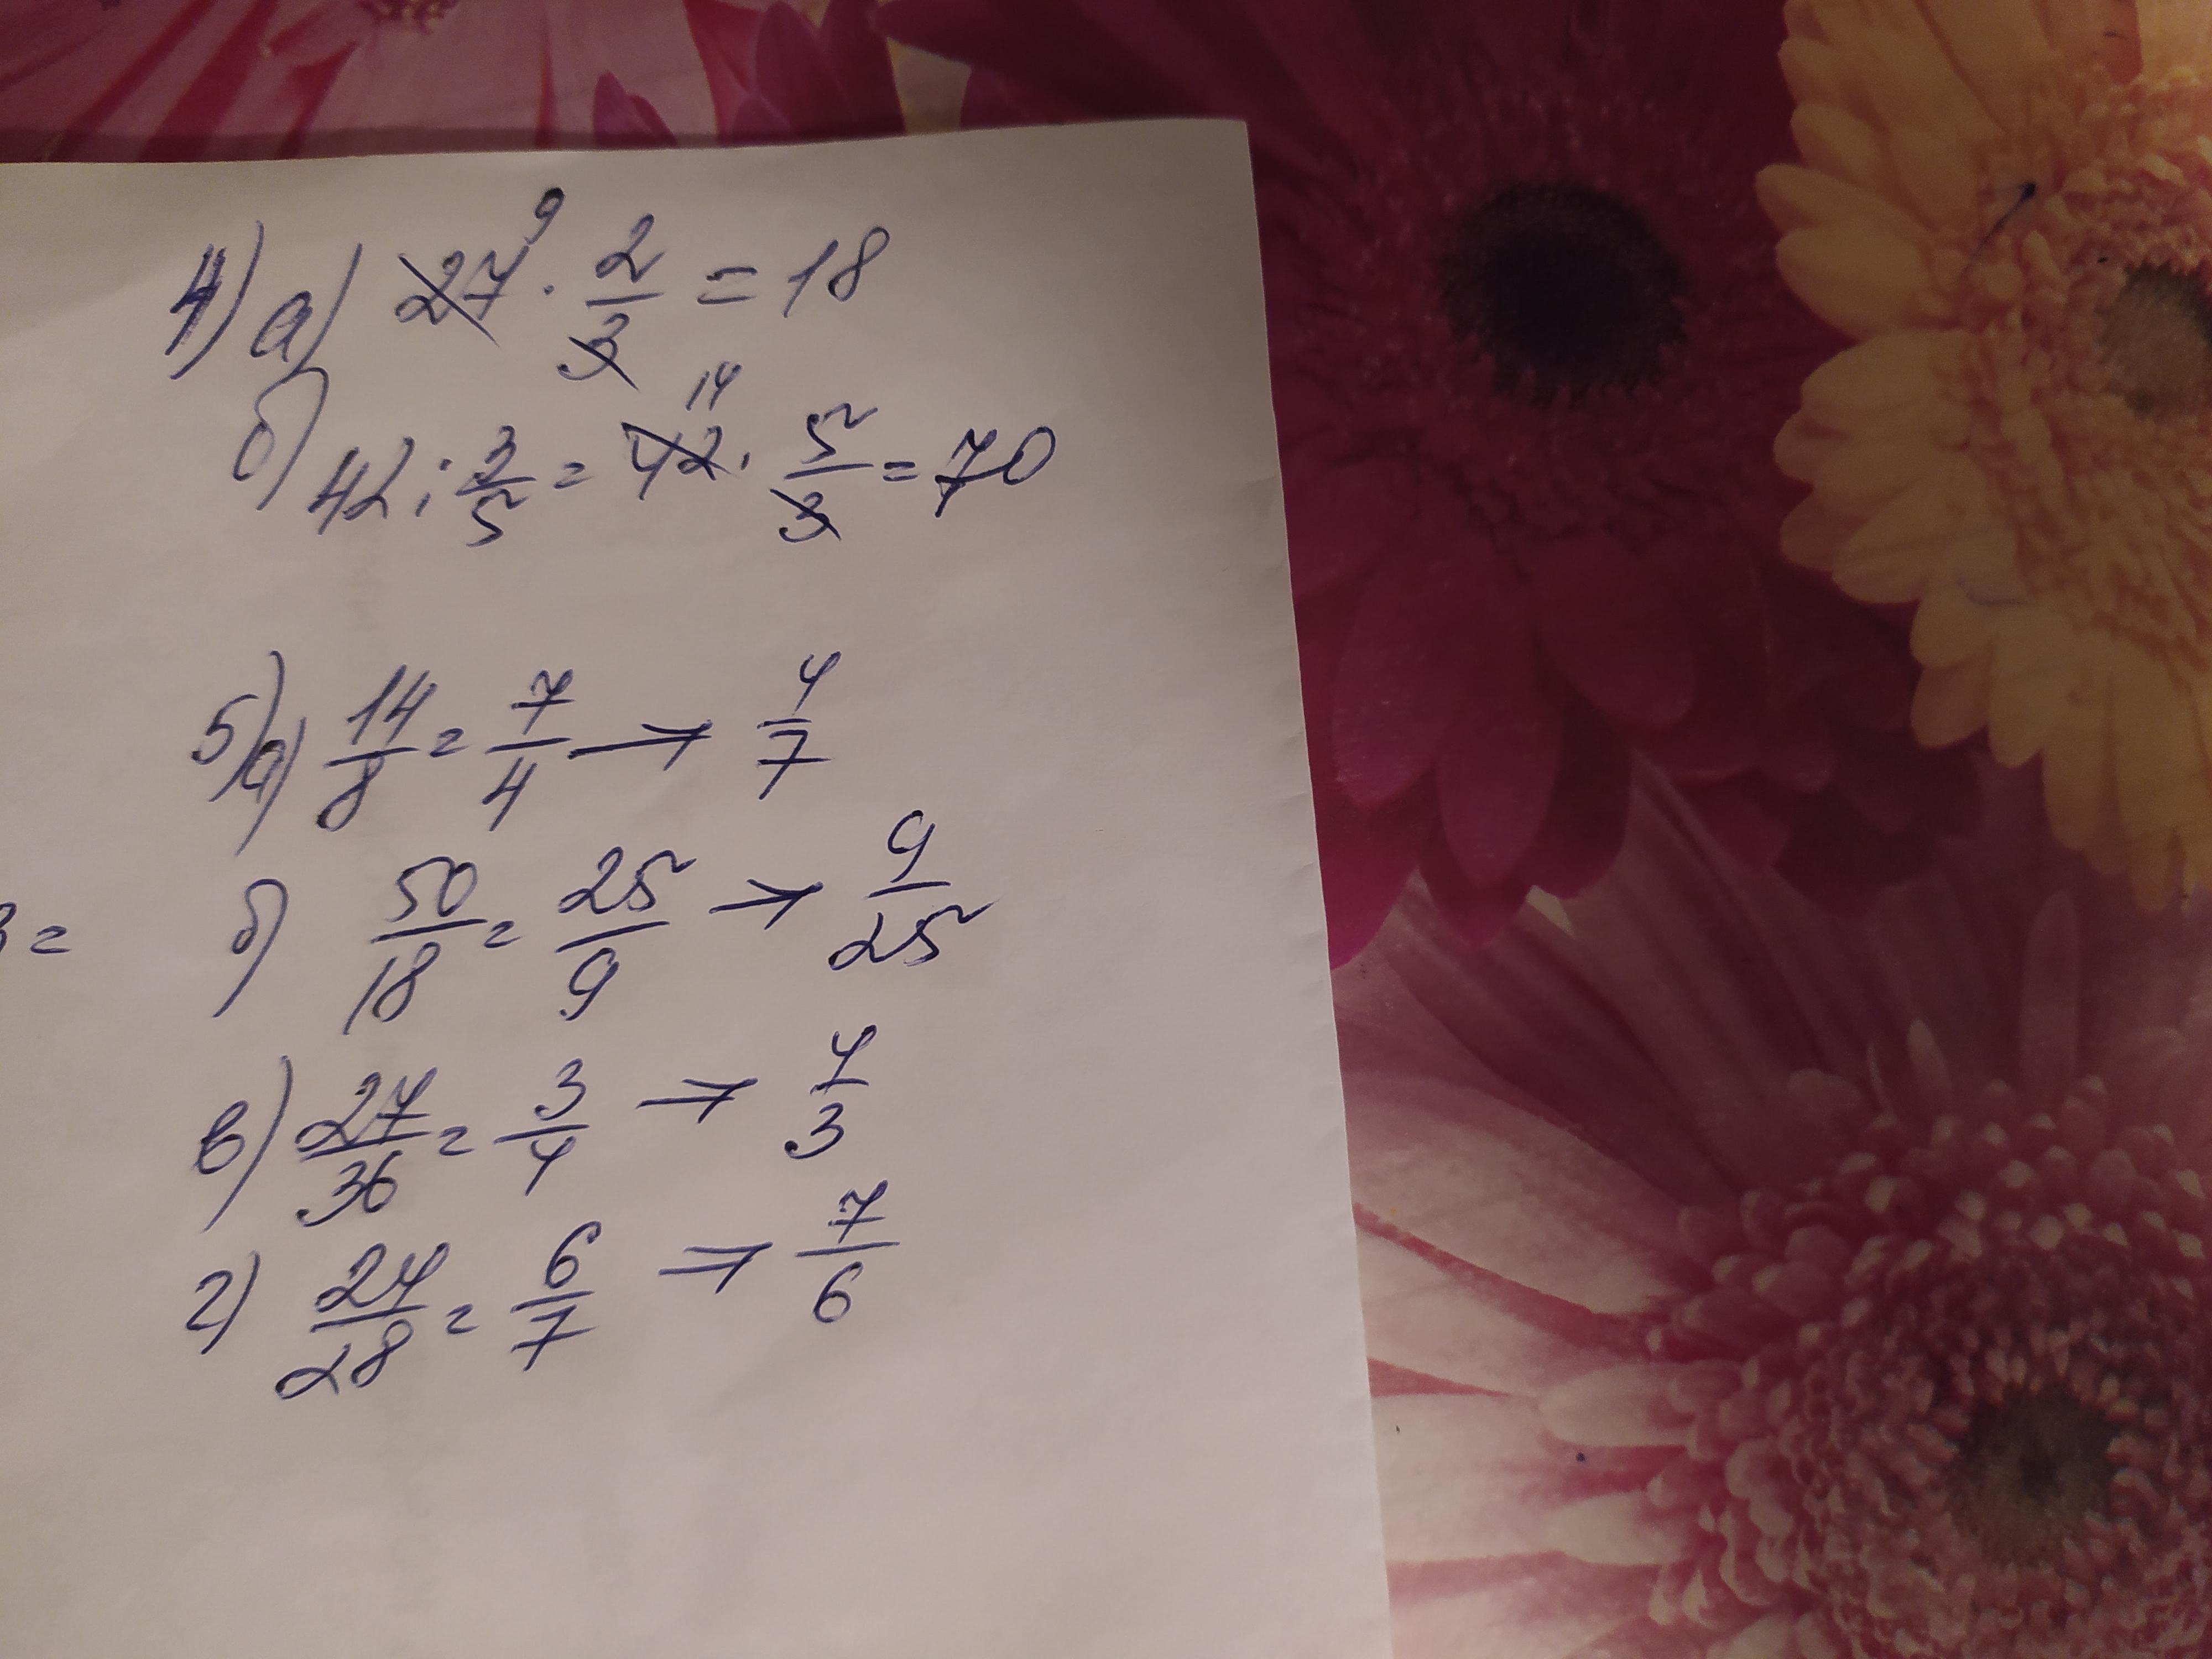 4) а) 27 9 · 2/3 = 18
б) 42 : 3/5 = 42 14 · 5/3 = 70
5) а) 14/8 = 7/4 → 4/7
б) 50/18 = 25/9 → 9/25
в) 27/36 = 3/4 → 4/3
г) 24/28 = 6/7 → 7/6